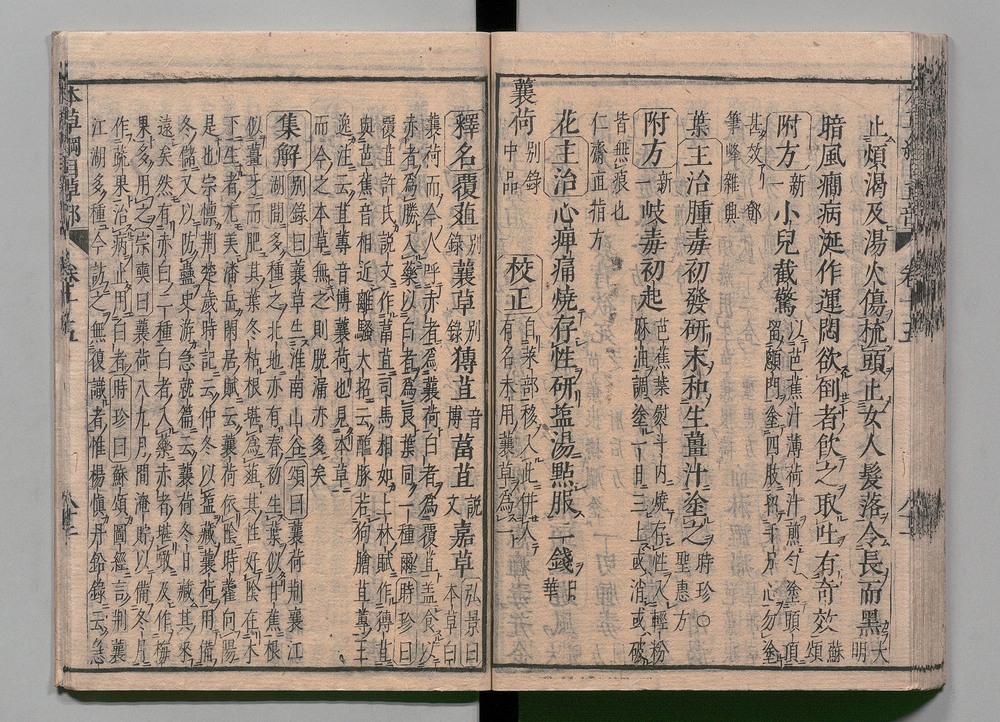 止煩渴及湯火傷梳頭止女人髮落令長而黑大明
暗風癇病涎作運悶欲倒者飲之取吐有奇效蘇頌
附方新一小兒截驚以芭蕉汁薄荷汁煎勻塗頭頂留顖門塗四肢留手足心勿塗
甚效鄧筆峰雜興
葉主治腫毒初發研末和生薑汁塗之時珍〇聖惠方
附方新一岐毒初起芭蕉葉熨斗內燒存性入輕粉麻油調塗一日三上或消或破
皆無痕也仁齋直指方
花主治心痺痛燒存性研塩湯點服二錢日華
蘘荷別錄中品校正自菜部移入此併入有名未用蘘草爲一
釋名覆葅別錄蘘草別錄猼苴音博葍苴說文嘉草弘景曰本草白
蘘荷而今人呼赤者爲蘘荷白者爲覆苴盖食以
赤者爲勝入藥以白者爲良葉同一種爾時珍曰
覆苴許氏說文作葍苴司馬相如上林賦作猼苴
與芭蕉音相近離騷大招云醢豚若狗膾苴蓴王
逸注云苴蓴音博蘘荷也見本草
而今之本草無之則脱漏亦多矣
集解別錄曰蘘草生淮南山谷頌曰蘘荷荊襄江
湖間多種之北地亦有春初生葉似甘蕉根
似薑牙而肥其葉冬枯根堪爲葅其性好陰在木
下生者尤美潘岳閑居賦云蘘荷依陰時藿向陽
是也宗懍荊楚歲時記云仲冬以塩藏蘘荷用備
冬儲又以防蠱史游急就篇云蘘荷冬日藏其來
遠矣然有赤白二種白者入藥赤者堪噉及作梅
果多用之宗奭曰蘘荷八九月間淹貯以備冬月
作蔬果治病止用白者時珍曰蘇頌圖經言荊襄
江湖多種今訪之無復識者惟楊慎丹鉛錄云急